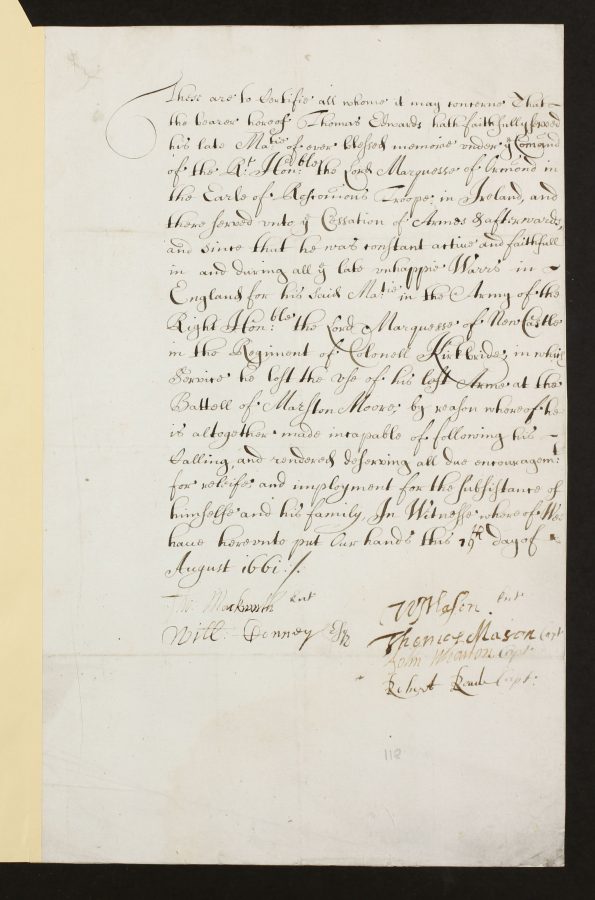 These are to Certifie all whome it may concerne That
the bearer hereof Thomas Edwards hath faithfully served
his late Ma:tie of ever blessed memorie vnder ye Comand
of the Rt: Hon:ble the Lord Marquesse of Ormond in
the Earle of Roscomons Troope, in Ireland, and
there served vnto ye Cessation of Armes & afterwards,
and since that he was constant active and faithfull
in and during all ye late vnhappie Warrs in
England for his said Ma:tie in the Army of the
Right Hon:ble the Lord Marquesse of New Castle
in the Regiment of Colonell Kirkbride, in which
Service he lost the vse of his left Arme at the
Battell of Marston Moore, by reason whereof he
is altogether made incapable of following his
Calling, and rendered deserving all due encouragemt:
for releife and imployment for the subsistance of
himselfe and his family, In Witnesse whereof We
haue herevnto put Our hands this 19th day of
August 1661 /.
Tho: Mackworth
Will: Penney Esq
Mason
Thomas Mason Capt
John Capt
Robert Capt:
112